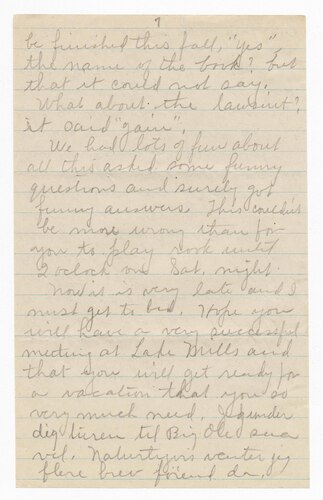 7
be finished this fall, "yes",
the name of the book? but
that it could not say.
What about the lawsuit?
it said "gain".
We had lots of fun about
all this asked some funny
questions and surely got
funny answers. This couldn't
be more wrong than for
you to play rook until
2 oclock on Sat. night.
Now it is very late and I
must get to bed. Hope you
will have a very successful
meeting at Lake Mills and
that you will get ready for
a vacation that you so
very much need.
dig turen til Big Ole saa
vel. Naturligvis venter jeg
flere brev förend da.